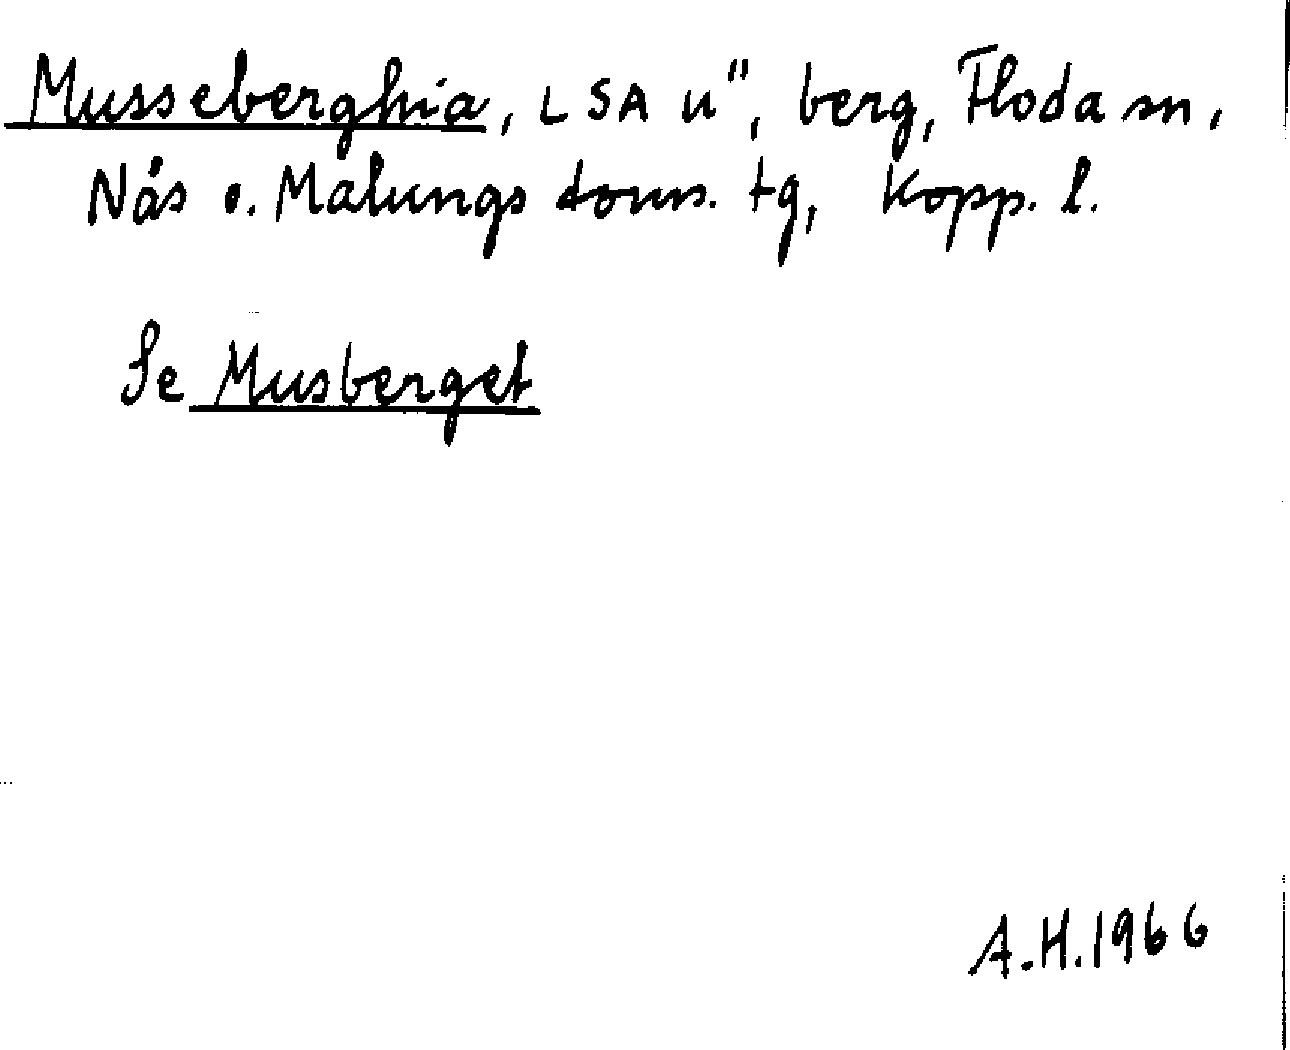 Musseberghia, LSA U", berg, Floda sn,
Nås o. Malungs doms. tg, Kopp. l.
Se Musberget
A.H.1966